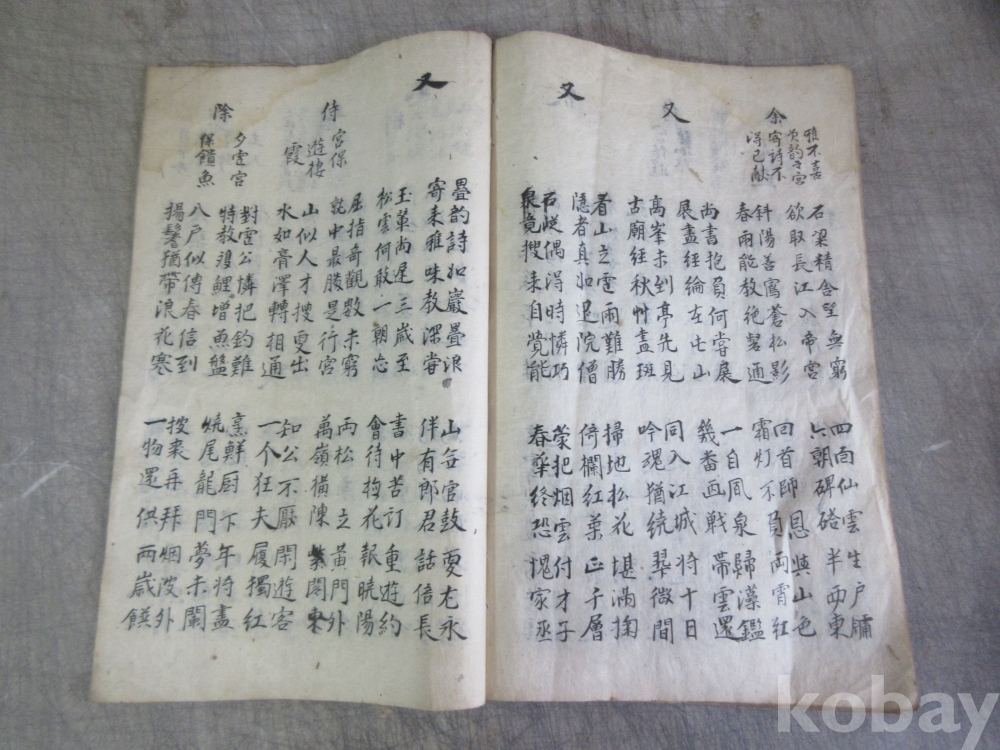 余
雅不喜
次韵之宮
寄诗不
得已献
石梁精舍望無窮
四面仙雲生戶牖
欲取長江入帝宮
六朝碑碣半西東
斜陽善寫蒼松影
回首師恩與山色
春雨能教絕磬通
霜灯不負両霄紅
又
尚書抱負何嘗展
一自風泉歸藻鑑
展盡經綸在此山
幾畨画戰帶雲還
高峯未到亭先見
同入江城將十日
古廟經秋艸盡班
吟魂猶繞翠微間
又
看山之雪雨難勝
掃地松花堪満掬
隱者真如退院僧
倚欄紅葉正千層
石從偶得時憐巧
榮把烟雲付才子
泉竟搜来自覺能
春華終恐愧家丞
又
疊韵詩如巖疊浪
山官鼓更尤永
寄来雅味教深嘗
伴有郎君話倍長
玉葉尚遲三歲至
書中苦訂重遊約
松雲何敢一朝忘
會待梅花報曉陽
侍
宮保
遊棲
霞
屈指奇觀數未窮
両松立黃門外
就中最勝是行宮
萬嶺橫陳紫閣東
山似人才搜更出
知公不厭閑遊客
水如膏澤轉相通
一个狂夫履獨紅
除
夕雪宮
保饋魚
對雪公憐把釣難
烹鮮厨下年將盡
特教鯉增魚盤
燒尾龍門夢未闌
八戶似傳春信到
披裘再拜烟波外
揚鬐猶帶浪花寒
一物還供両歲饌
kobay